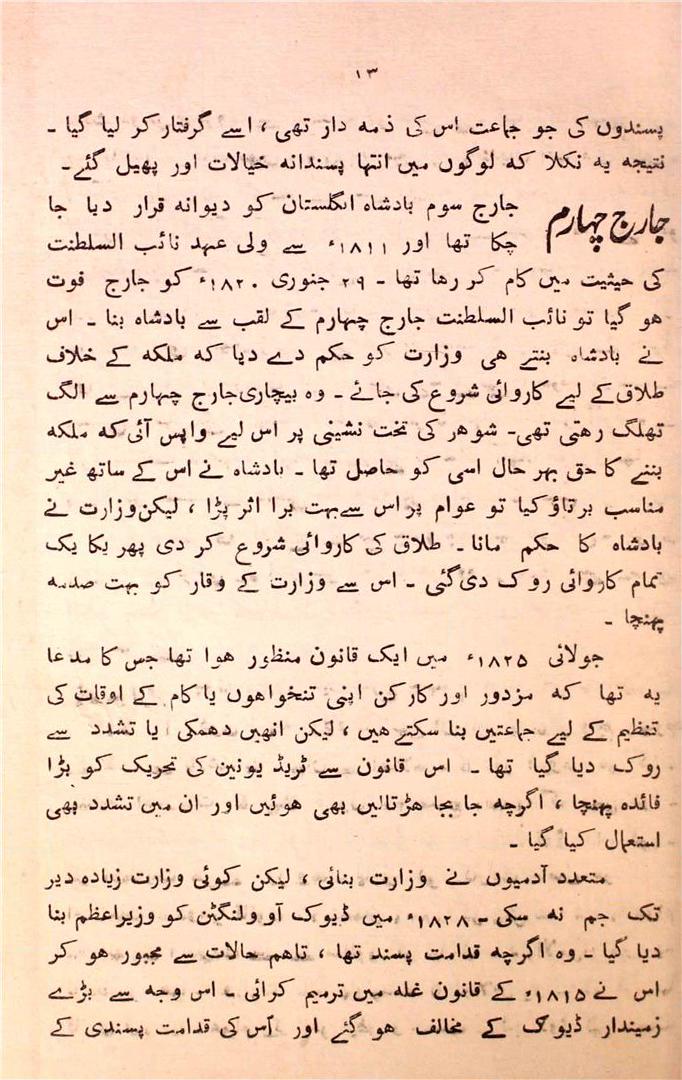 ۱۳
پسندوں کی جو جماعت اس کی ذمہ دار تھی ، اسے گرفتار کر لیا گیا ۔
نتیجہ یہ نکلا کہ لوگوں میں انتہا پسندانہ خیالات اور پھیل گئے۔
جارج چہارم
جارج سوم بادشاہ انگلستان کو دیوانہ قرار دیا جا
چکا تھا اور ۱۸۱۱ء سے ولی عہد نائب السلطنت
کی حیثیت میں کام کر رہا تھا ۔ ۲۹ جنوری ۱۸۲۰ء کو جارج فوت
ہو گیا تو نائب السلطنت جارج چہارم کے لقب سے بادشاہ بنا ۔ اس
نے بادشاہ بنتے ہی وزارت کو حکم دے دیا کہ ملکہ کے خلاف
طلاق کے لیے کاروائی شروع کی جائے ۔ وہ بیچاری جارج چہارم سے الگ
تھلگ رہتی تھی۔ شوہر کی تخت نشینی پر اس لیے واپس آئی کہ ملکہ
بننے کا حق بہر حال اسی کو حاصل تھا ۔ بادشاہ نے اس کے ساتھ غیر
مناسب برتاؤ کیا تو عوام پر اس سے بہت برا اثر پڑا ، لیکن وزارت نے
بادشاہ کا حکم مانا۔ طلاق کی کاروائی شروع کر دی پھر یکا یک
تمام کاروائی روک دی گئی ۔ اس سے وزارت کے وقار کو بہت صدمہ
پہنچا ۔
جولائی ۱۸۲۵ء میں ایک قانون منظور ہوا تھا جس کا مدعا
یہ تھا کہ مزدور اور کارکن اپنی تنخواہوں یا کام کے اوقات کی
تنظیم کے لیے جماعتیں بنا سکتے ہیں ، لیکن انہیں دھمکی یا تشدد سے
روک دیا گیا تھا ۔ اس قانون سے ٹریڈ یونین کی تحریک کو بڑا
فائدہ پہنچا ، اگرچہ جا بجا ہڑتالیں بھی ہوئیں اور ان میں تشدد بھی
استعمال کیا گیا ۔
متعدد آدمیوں نے وزارت بنائی ، لیکن کوئی وزارت زیادہ دیر
تک جم نہ سکی ۔ ۱۸۲۸ء میں ڈیوک آو ولنگٹن کو وزیراعظم بنا
دیا گیا ۔ وہ اگرچہ قدامت پسند تھا ، تاہم حالات سے مجبور ہو کر
اس نے ۱۸۱۵ء کے قانون غلہ میں ترمیم کرائی ۔ اس وجہ سے بڑے
زمیندار ڈیوک کے مخالف ہو گئے اور اس کی قدامت پسندی کے